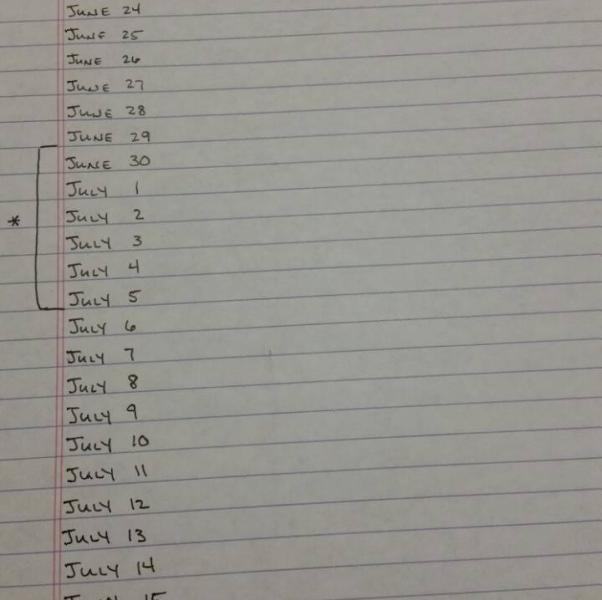 JUNE 24
JUNE 25
JUNE 26
JUNE 27
JUNE 28
JUNE 29
JUNE 30
JULY 1
* JULY 2
JULY 3
JULY 4
JULY 5
JULY 6
JULY 7
JULY 8
JULY 9
JULY 10
JULY 11
JULY 12
JULY 13
JULY 14
JULY 15